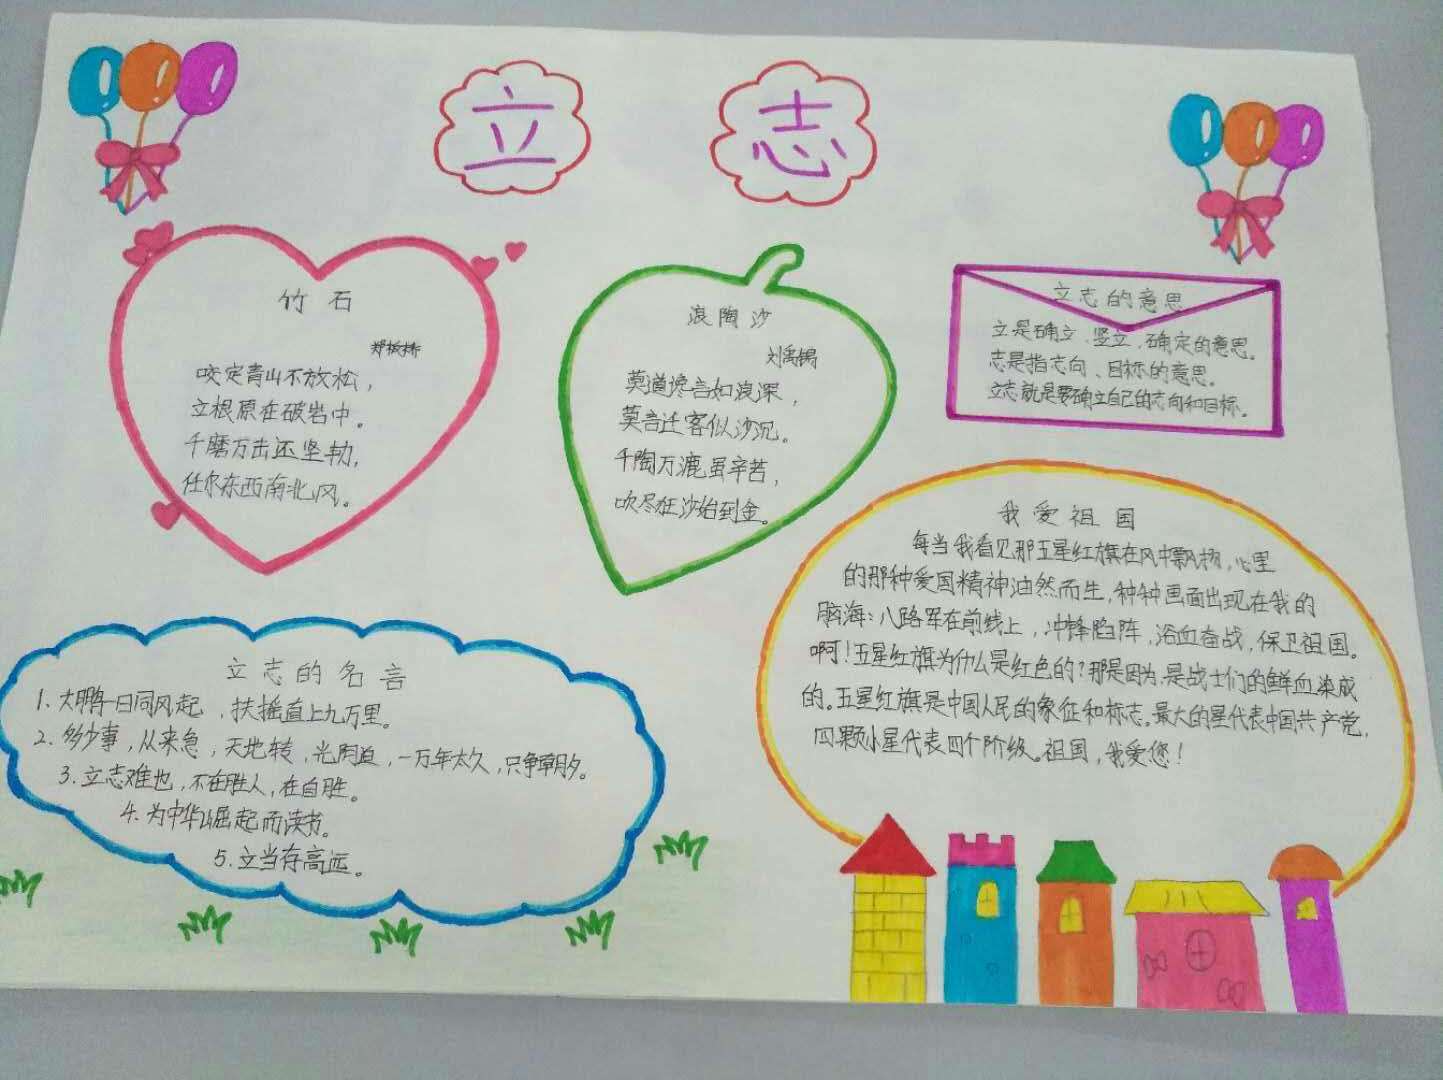 立 志
竹 石
郑板桥
咬定青山不放松，
立根原在破岩中。
千磨万击还坚劲，
任尔东西南北风。
浪 陶 沙
刘禹锡
莫道谗言如浪深，
莫言迁客似沙沉。
千陶万漉虽辛苦，
吹尽狂沙始到金。
立志的意思
立是确立、竖立、确定的意思。
志是指志向、目标的意思。
立志就是要确立自己的志向和目标。
我 爱 祖 国
每当我看见那五星红旗在风中飘扬，心里
的那种爱国精神油然而生，种种画面出现在我的
脑海：八路军在前线上，冲锋陷阵，浴血奋战，保卫祖国。
啊！五星红旗为什么是红色的？那是因为是战士们的鲜血染成
的。五星红旗是中国人民的象征和标志。最大的星代表中国共产党，
四颗小星代表四个阶级。祖国，我爱您！
立 志 的 名 言
1. 大鹏一日同风起，扶摇直上九万里。
2. 多少事，从来急，天地转，光阴迫，一万年太久，只争朝夕。
3. 立志难也，不在胜人，在自胜。
4. 为中华崛起而读书。
5. 立当存高远。